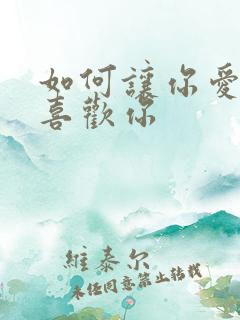 如何讓你愛
喜歡你
維泰尔
未任同意禁止转载